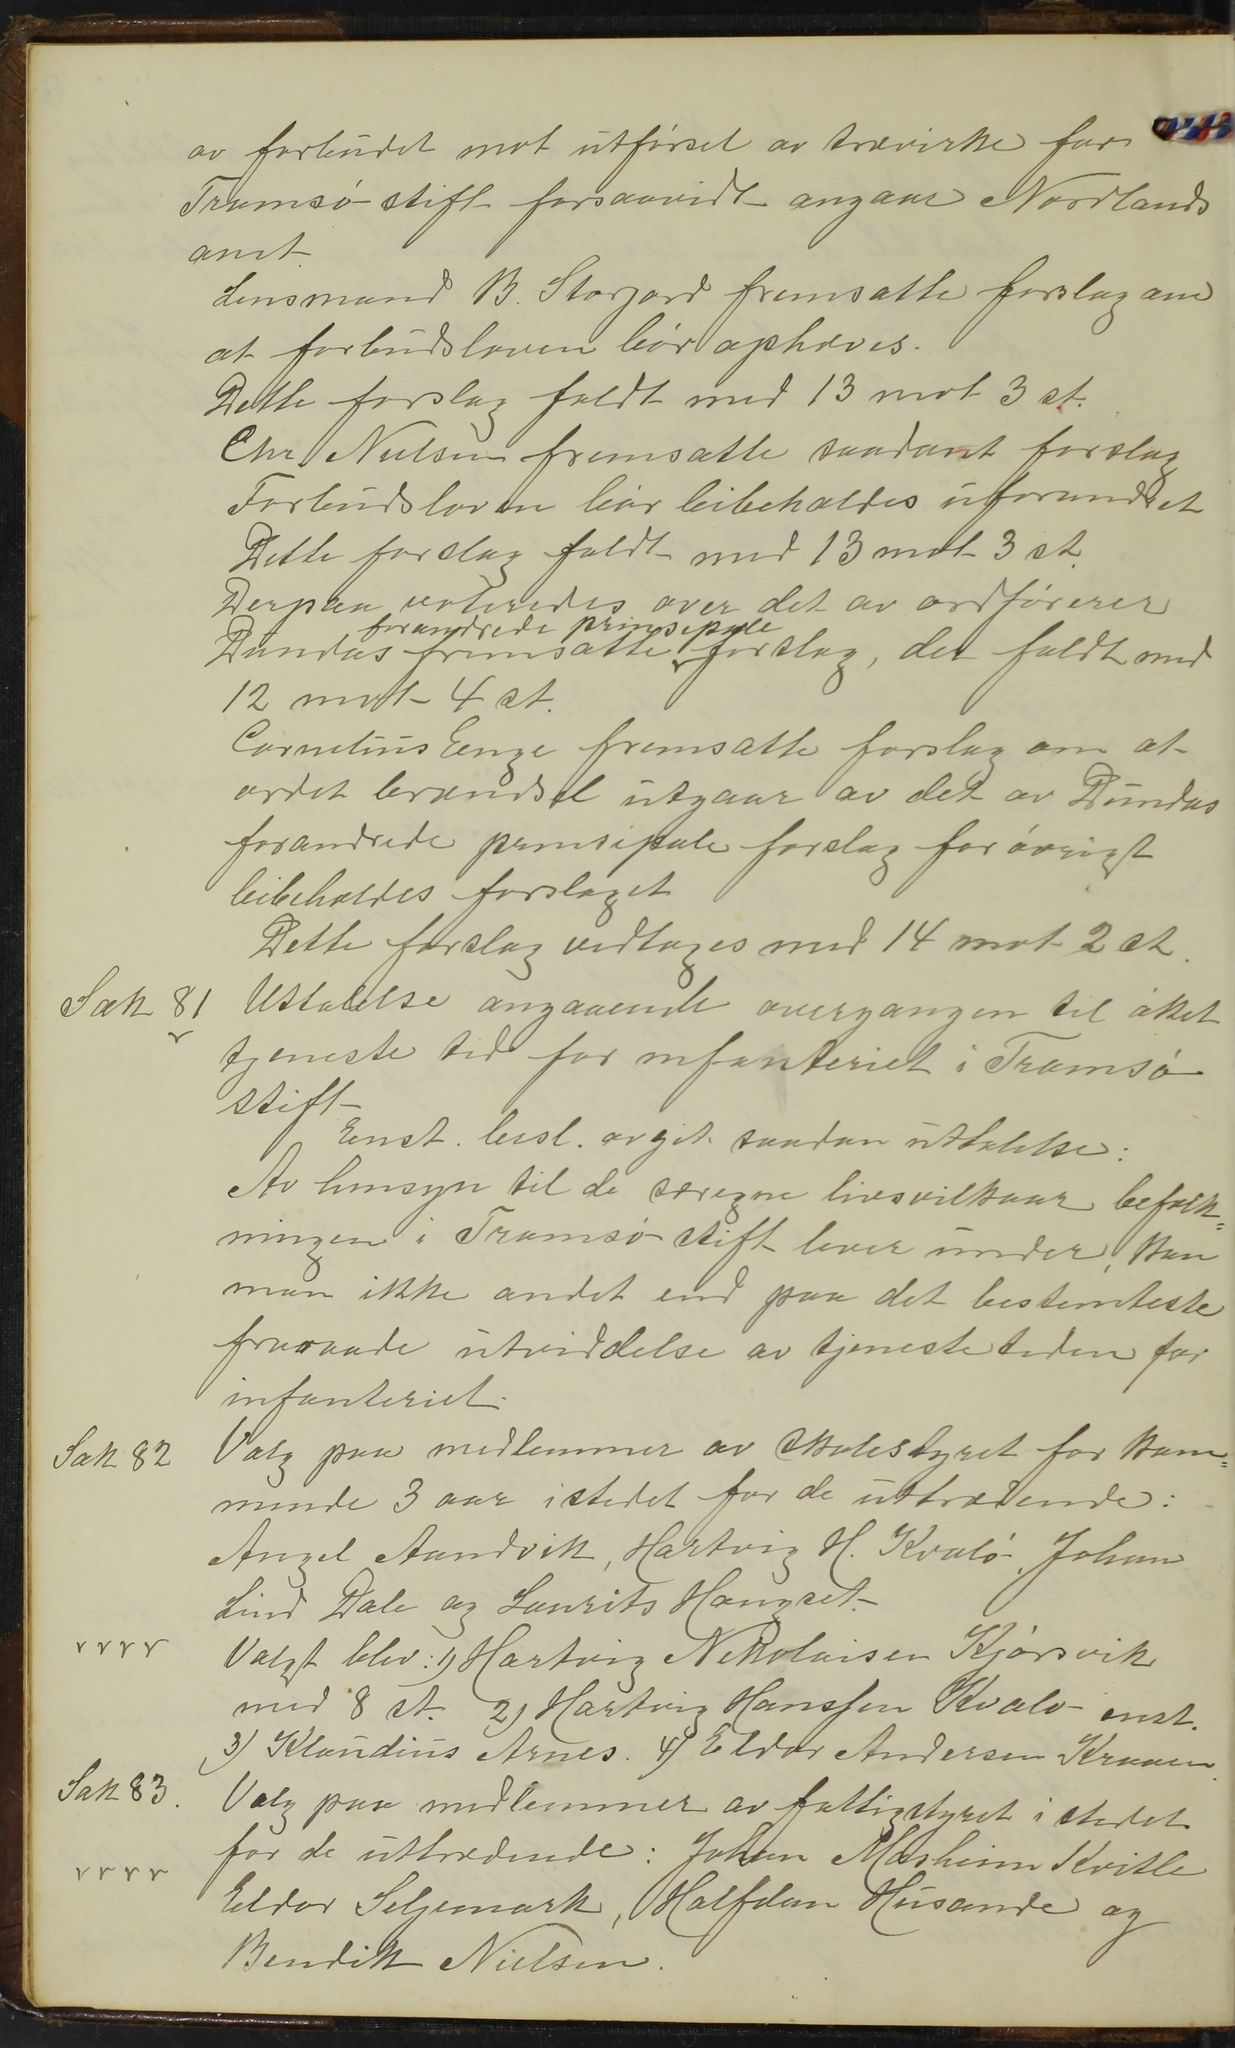 av forbudet mot utførsel av trævirke for
Tromsø stift forsaavidt angaar Nordlands
amt
Lensmand B. Storjord fremsatte forslag om
at forbudsloven bør ophæves.
Dette forslag faldt med 13 mot 3 st.
Chr. Nielsen fremsatte saadant forslag
Forbudsloven bør bibeholdes uforandret
Dette forslag faldt med 13 mot 3 st.
Derpaa voteredes over det av ordfører
forandrede prinsipale
Dundas fremsatte forslag, det faldt med
12 mot 4 st.
Cornelius Enge fremsatte forslag om at
ordet brændsel utgaar av det av Dundas
forandrede prinsipale forslag forøvrigt
bibeholdes forslaget
Dette forslag vedtages med 14 mot 2 st.
Sak 81 Uttalelse angaaende overgangen til øket
tjeneste tid for infanteriet i Tromsø
stift
Enst. besl. avgit saadan uttalelse:
Av hensyn til de særegne livsvilkaar befolk=
ningen i Tromsø stift lever under, kan
man ikke andet end paa det bestemteste
fraraade utviddelse av tjenestetiden for
infanteriet.
Sak 82 Valg paa medlemmer av skolestyret for kom=
mende 3 aar istedet for de uttrædende:
Angel Aandvik, Hartvig H. Kvalø, Johan
Lind Dale og Laurits Hongset.
Valgt blev: 1) Hartvig Nikolaisen Kjørsvik
med 8 st. 2) Hartvig Hanssen Kvalø enst.
3) Klaudius Arnes. 4) Eldor Andersen Kraaen.
Sak 83. Valg paa medlemmer av fattigstyret istedet
for de uttrædende: Johan Masheim Kvitle
Eldor Seljemark, Halfdan Husande og
Bendik Nielsen.